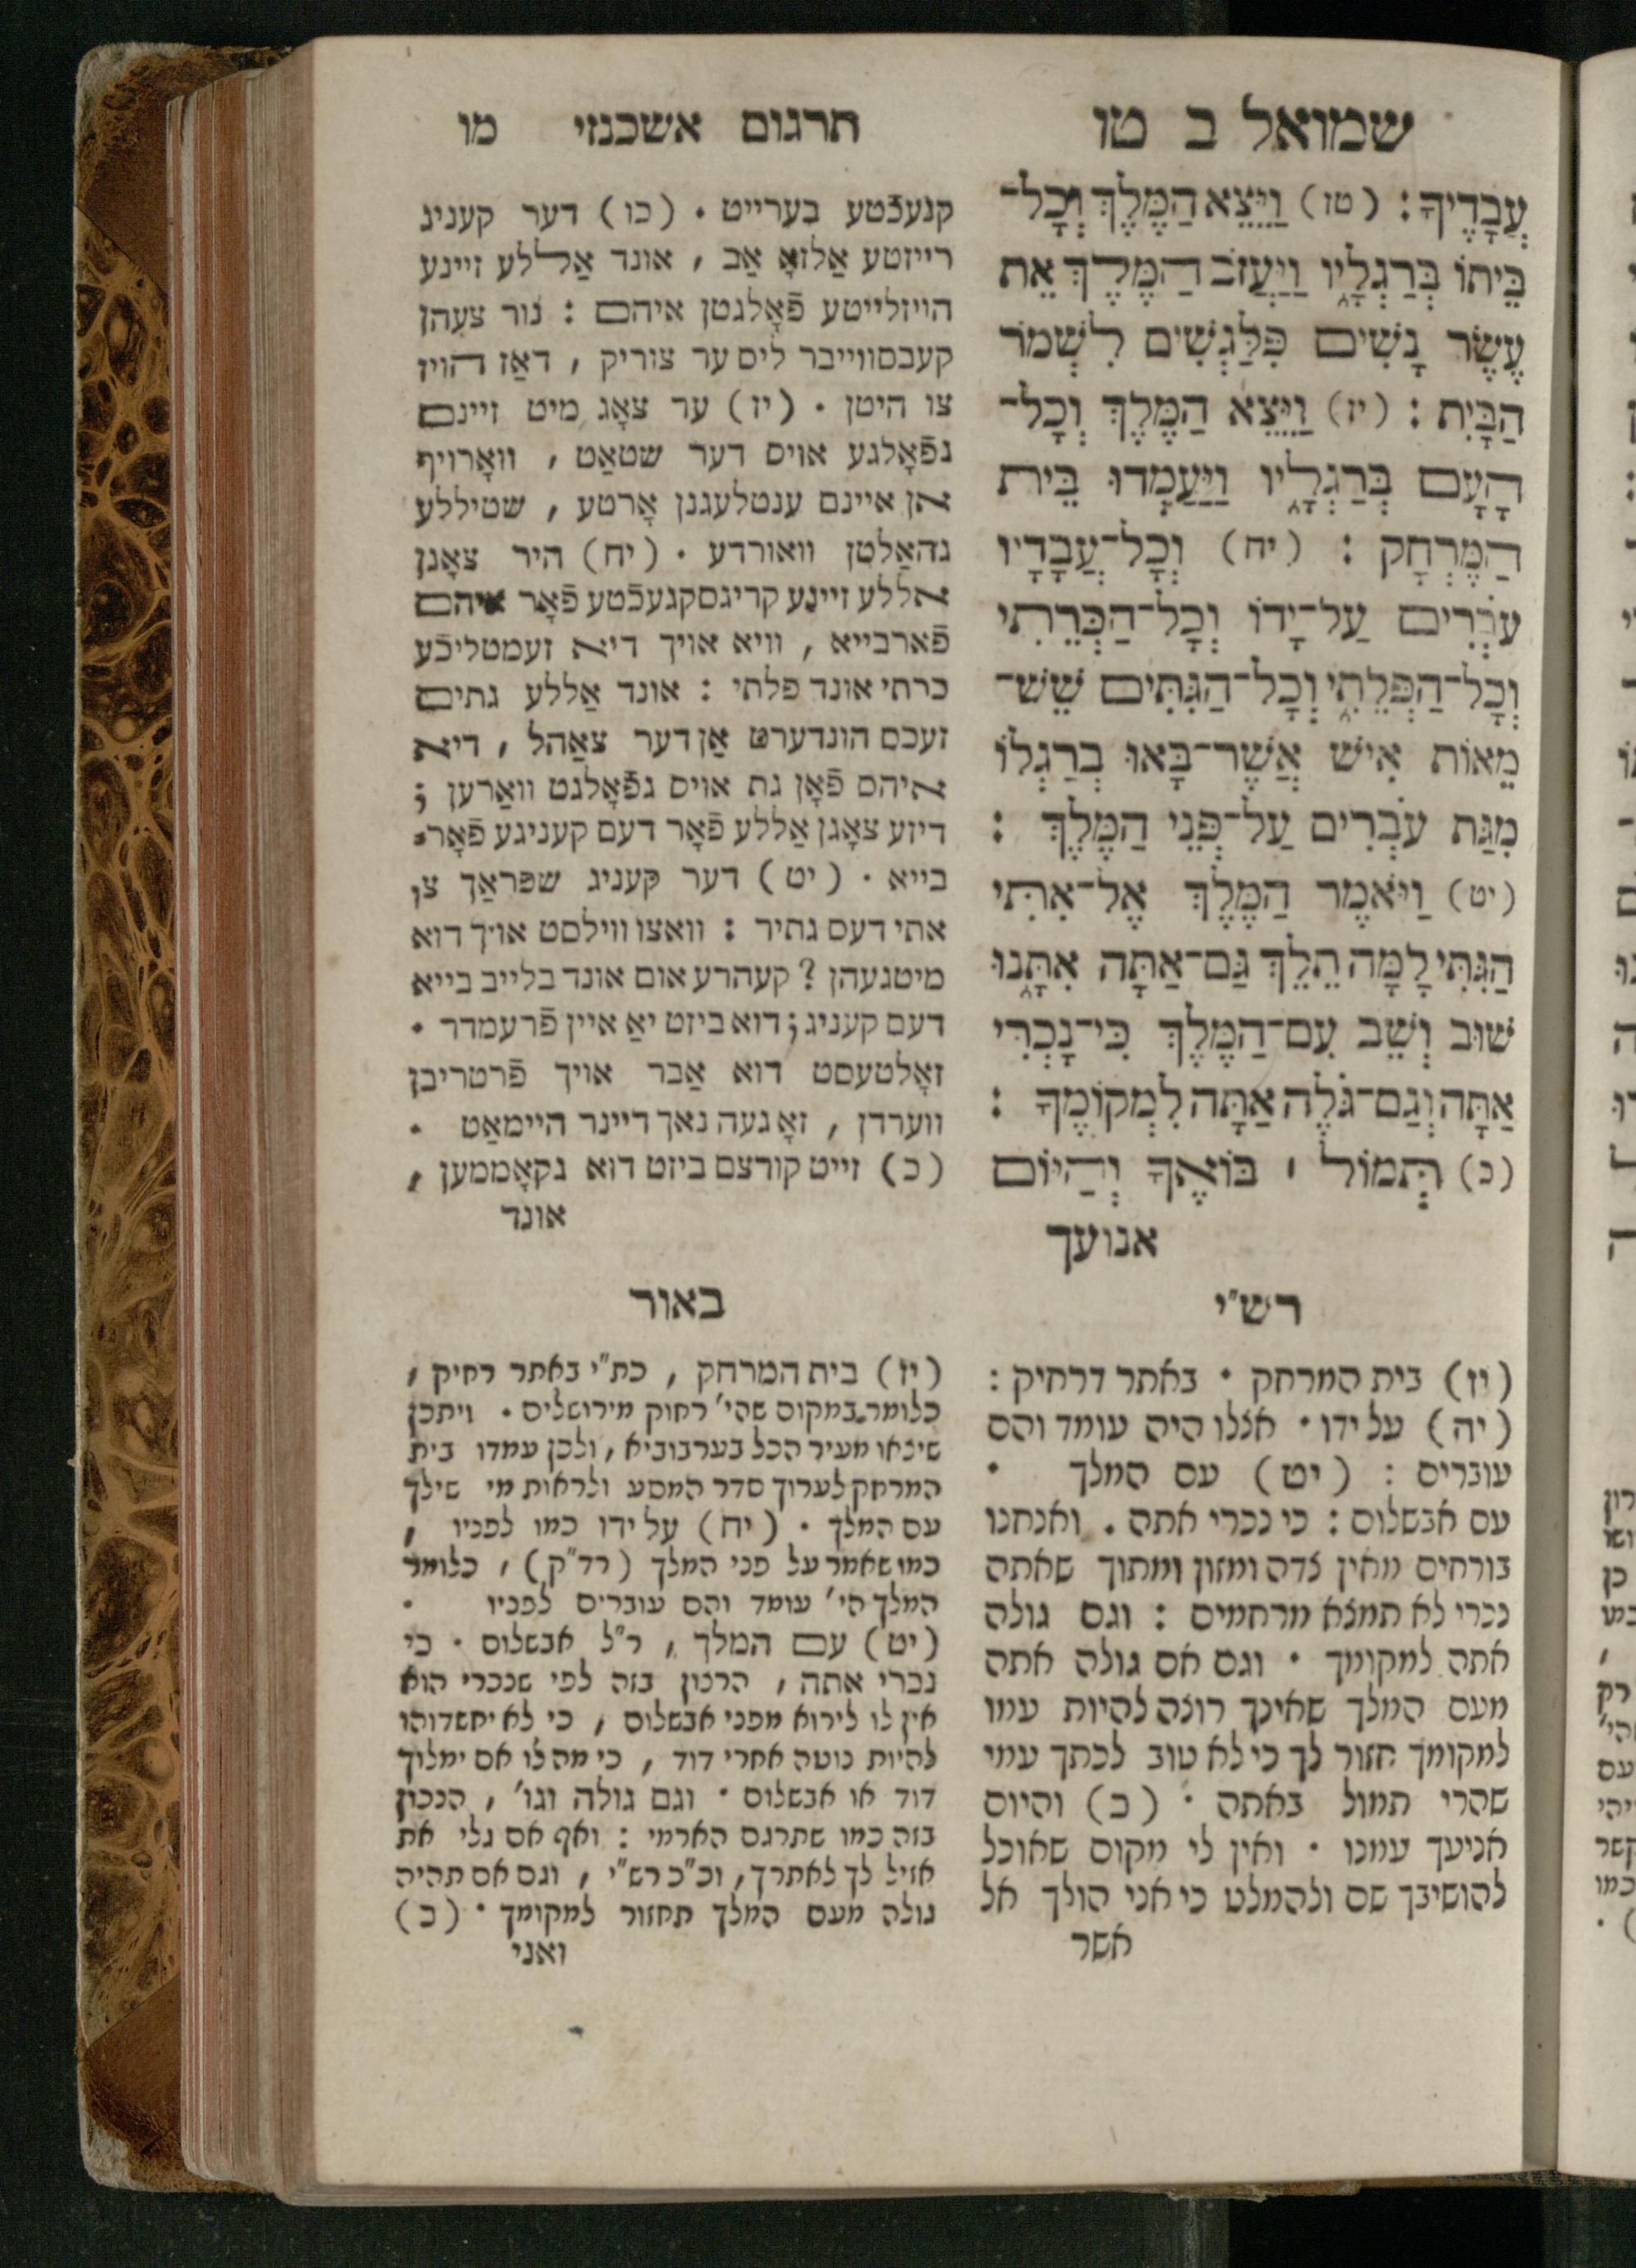 שמואל ב טו
תרגום אשכנזי מו
עֲבָדֶיךָ׃ (טז) וַיֵּצֵא הַמֶּלֶךְ וְכָל־
בֵּיתוֹ בְּרַגְלָיו וַיַּעֲזֹב הַמֶּלֶךְ אֵת
עֶשֶׂר נָשִׁים פִּלַגְשִׁים לִשְׁמֹר
הַבָּיִת׃ (יז) וַיֵּצֵא הַמֶּלֶךְ וְכָל־
הָעָם בְּרַגְלָיו וַיַּעַמְדוּ בֵּית
הַמֶּרְחָק׃ (יח) וְכָל־עֲבָדָיו
עֹבְרִים עַל־יָדוֹ וְכָל־הַכְּרֵתִי
וְכָל־הַפְּלֵתִי וְכָל־הַגִּתִּים שֵׁשׁ־
מֵאוֹת אִישׁ אֲשֶׁר־בָּאוּ בְרַגְלוֹ
מִגַּת עֹבְרִים עַל־פְּנֵי הַמֶּלֶךְ׃
(יט) וַיֹּאמֶר הַמֶּלֶךְ אֶל־אִתַּי
הַגִּתִּי לָמָּה תֵלֵךְ גַּם־אַתָּה אִתָּנוּ
שׁוּב וְשֵׁב עִם־הַמֶּלֶךְ כִּי־נָכְרִי
אַתָּה וְגַם־גֹּלֶה אַתָּה לִמְקוֹמֶךָ׃
(כ) תְּמוֹל ׀ בּוֹאֶךָ וְהַיּוֹם
אנועך
קנעכֿטע בערייט . (כו) דער קעניג
רייזטע אַלזאָ אַב , אונד אַללע זיינע
הויזלייטע פֿאָלגטן איהם : נור צעהן
קעבסווייבר ליס ער צוריק , דאַז הויז
צו היטן . (יז) ער צאָג מיט זיינם
גפֿאָלגע אויס דער שטאַט , וואָרויף
אן איינם ענטלעגנן אָרטע , שטיללע
גהאַלטן וואורדע . (יח) היר צאָגן
אללע זיינע קריגסקנעכֿטע פֿאָר איהם
פֿארבייא , וויא אויך דיא זעמטליכֿע
כרתי אונד פלתי : אונד אַללע גתים
זעכס הונדערט אַן דער צאַהל , דיא
איהם פֿאָן גת אויס גפֿאָלגט וואַרען ;
דיזע צאָגן אַללע פֿאָר דעם קעניגע פֿאָר־
בייא . (יט) דער קעניג שפראַך צו
אתי דעם גתיר : וואצו ווילסט אויך דוא
מיטגעהן ? קעהרע אום אונד בלייב בייא
דעם קעניג ; דוא ביזט יאַ איין פֿרעמדר .
זאָלטעסט דוא אַבר אויך פֿרטריבן
ווערדן , זאָ געה נאך דיינר היימאַט .
(כ) זייט קורצם ביזט דוא גקאָממען ,
אונד
רש"י
(יז) בית המרחק . באתר דרחיק :
(יח) על ידו . אצלו היה עומד והם
עוברים : (יט) עם המלך .
עם אבשלום : כי נכרי אתה . ואנחנו
בורחים מאין צדה ומזון ומתוך שאתה
נכרי לא תמצא מרחמים : וגם גולה
אתה למקומך . וגם אם גולה אתה
מעם המלך שאינך רוצה להיות עמו
למקומך חזור לך כי לא טוב לכתך עמי
שהרי תמול באתה . (כ) והיום
אניעך עמנו . ואין לי מקום שאוכל
להושיבך שם ולהמלט כי אני הולך אל
אשר
באור
(יז) בית המרחק , כת"י באתר רחיק ,
כלומר במקום שהי' רחוק מירושלים . ויתכן
שיצאו מעיר הכל בערבוביא , ולכן עמדו בית
המרחק לערוך סדר המסע ולראות מי שילך
עם המלך . (יח) על ידו כמו לפניו ,
כמו שאמר על פני המלך (רד"ק) , כלומר
המלך הי' עומד והם עוברים לפניו .
(יט) עם המלך , ר"ל אבשלום . כי
נכרי אתה , הרצון בזה לפי שנכרי הוא
אין לו לירוא מפני אבשלום , כי לא יחשדוהו
להיות נוטה אחרי דוד , כי מה לו אם ימלוך
דוד או אבשלום . וגם גולה וגו' , הנכון
בזה כמו שתרגם הארמי : ואף אם גלי את
אזיל לך לאתרך , וכ"כ רש"י , וגם אם תהיה
גולה מעם המלך תחזור למקומך . (כ)
ואני